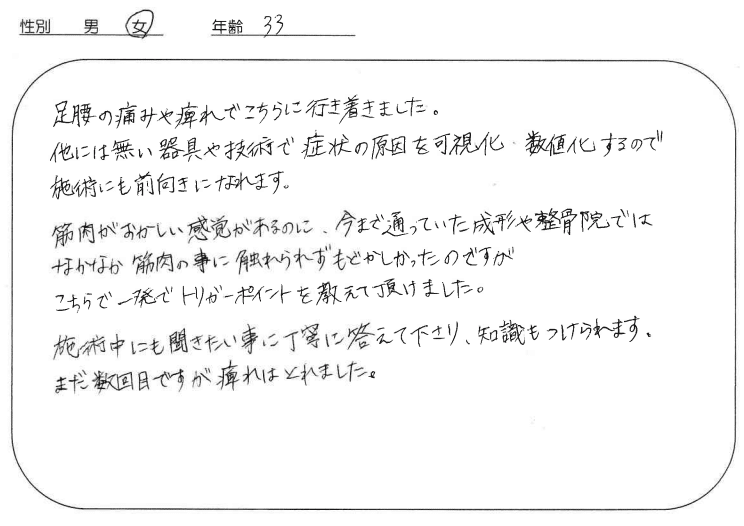 性別 男 女 年齢 33
足腰の痛みや痺れでこちらに行き着きました。
他には無い器具や技術で症状の原因を可視化・数値化するので
施術にも前向きになれます。
筋肉がおかしい感覚があるのに、今まで通っていた成形や整骨院では
なかなか筋肉の事に触れられずもどかしかったのですが
こちらで一発でトリガーポイントを教えて頂けました。
施術中にも聞きたい事に丁寧に答えて下さり、知識もつけられます。
まだ数回目ですが痺れはとれました。